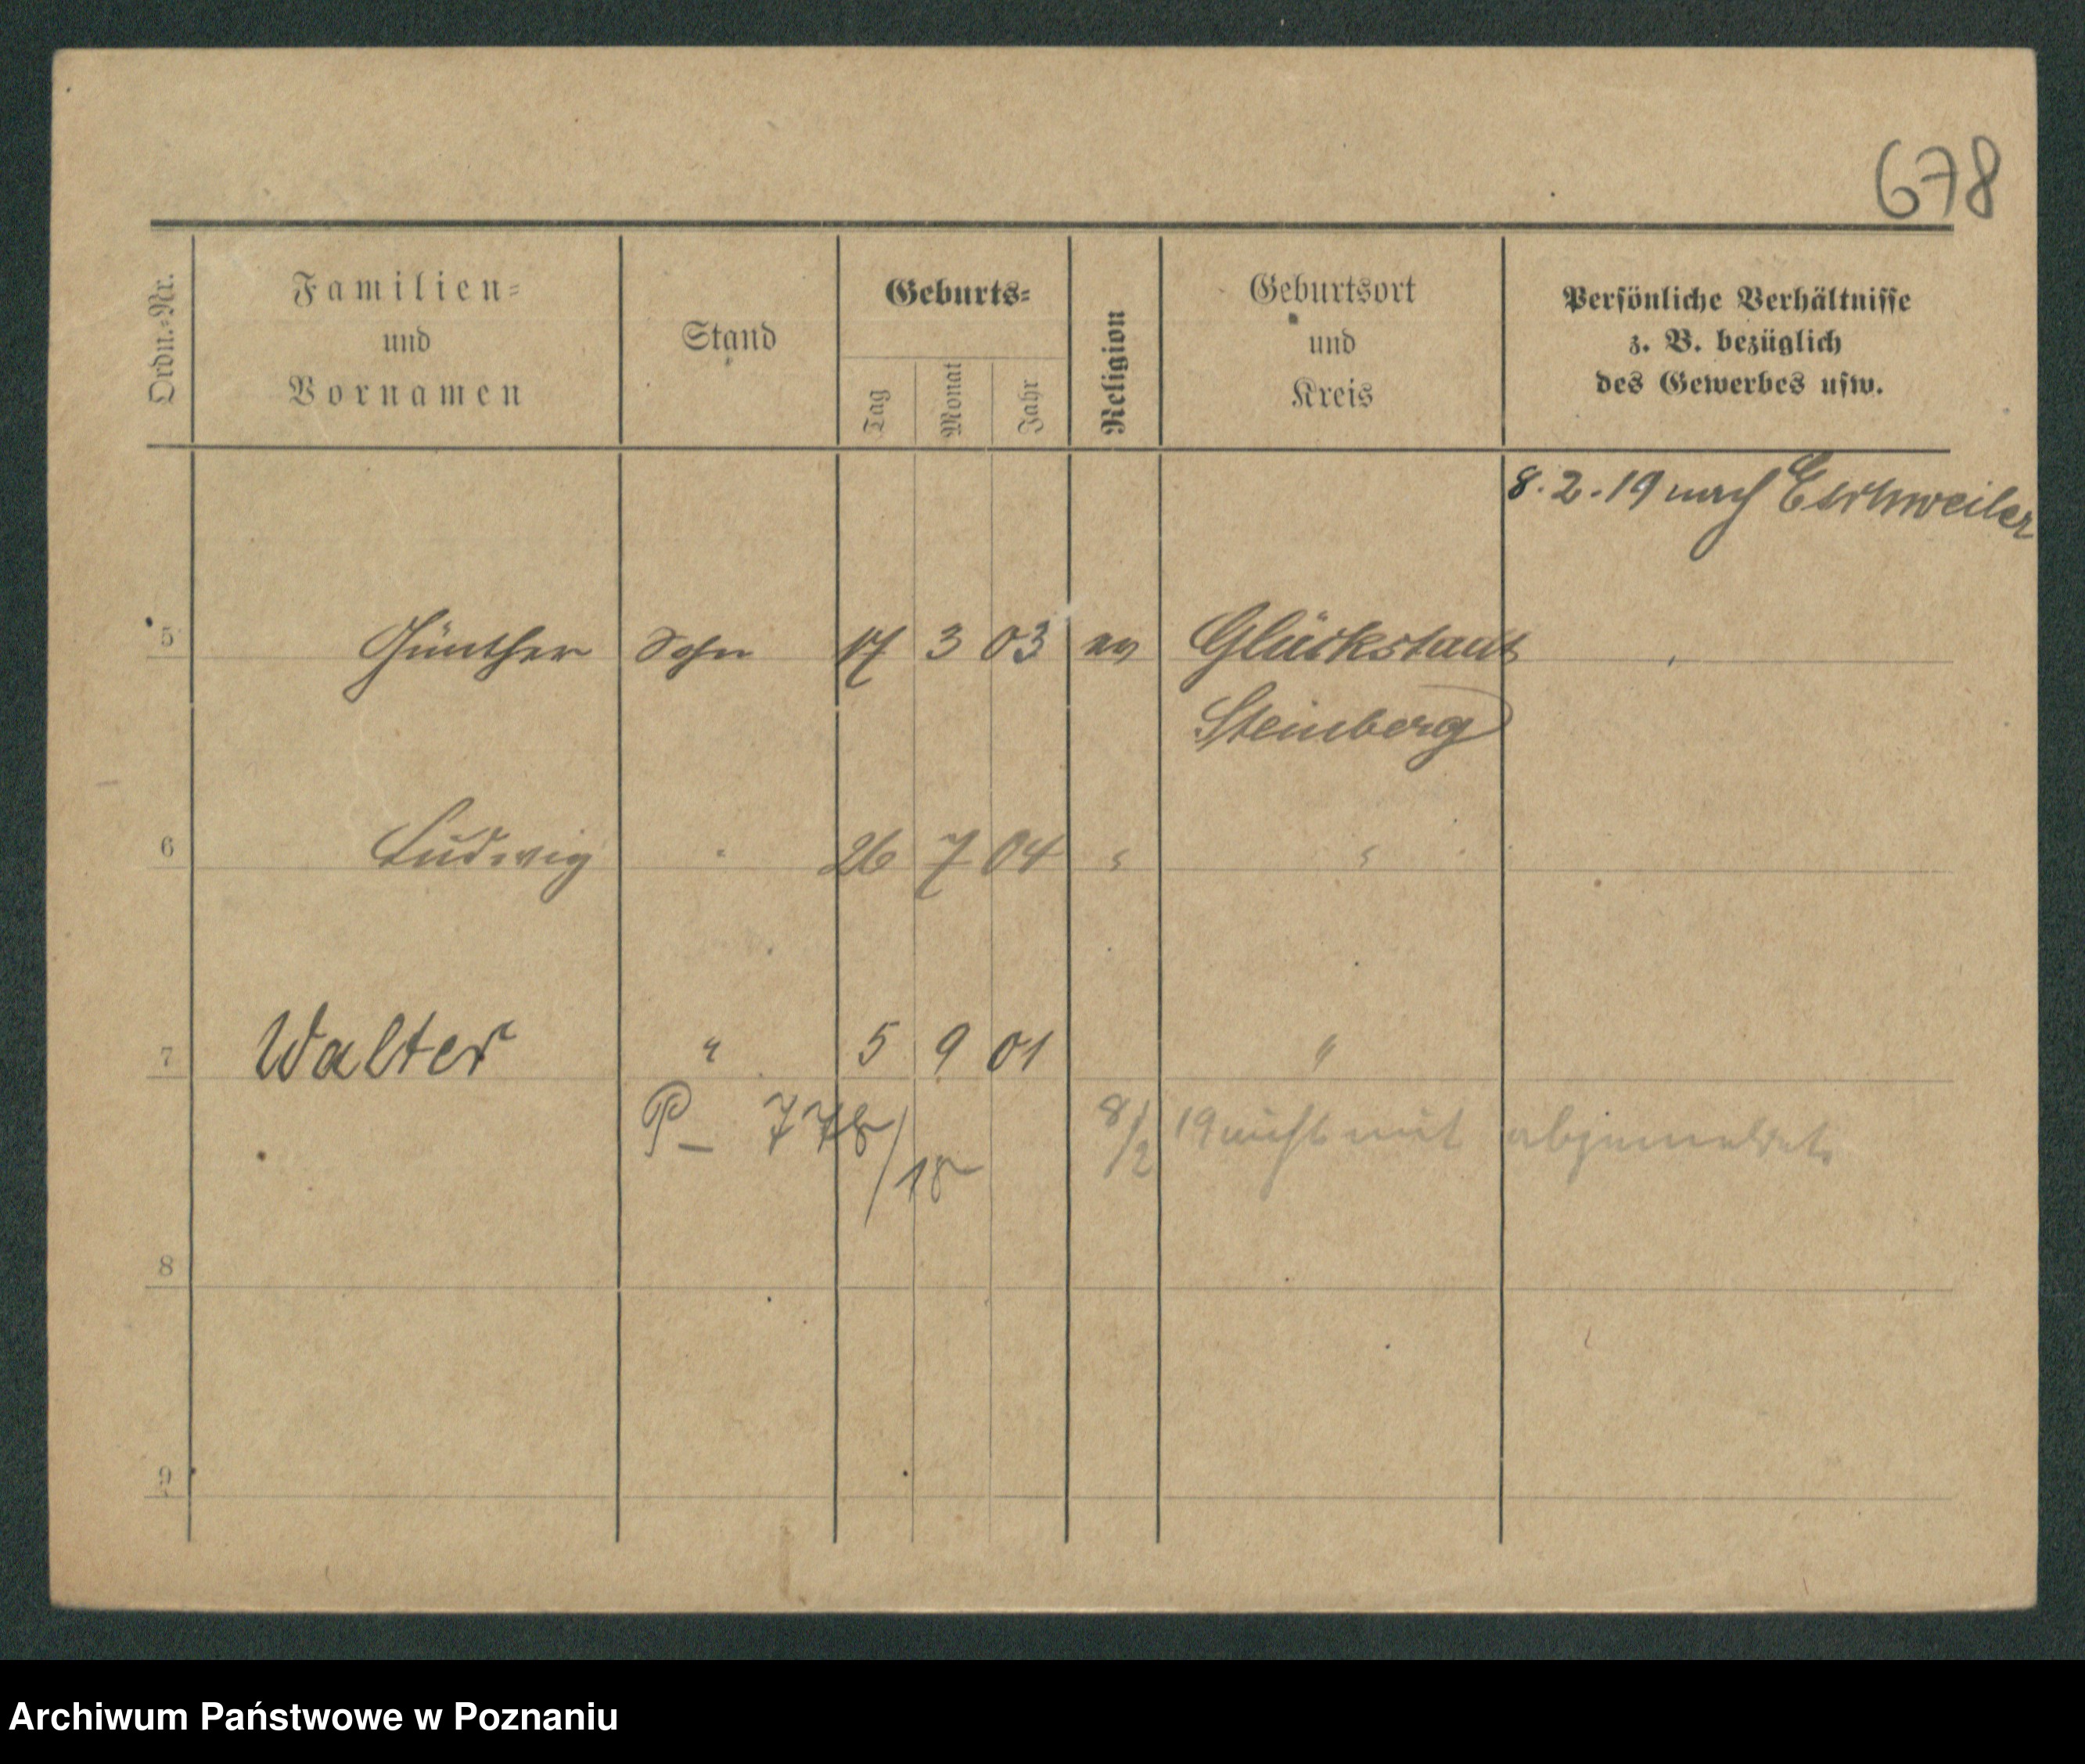 678
Ordn.-Nr.
Familien-
und
Vornamen
Stand
Geburts-
Tag
Monat
Jahr
Religion
Geburtsort
und
Kreis
Persönliche Verhältnisse
z. B. bezüglich
des Gewerbes usw.
8.2.19 nach Eschweiler
5 Günther Sohn 17 3 03 ev Glückstadt
Steinberg
6 Ludwig " 26 7 04 " "
7 Walter " 5 9 01 "
P– 778/18 8/2 19 nicht mit abgemeldet.
8
9
Archiwum Państwowe w Poznaniu